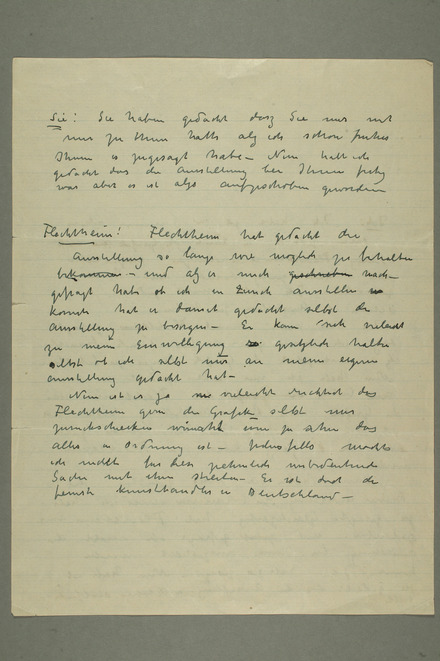 Sie: Sie haben gedacht dasz Sie nur mit
mir zu thun hatte als ich schon früher
Ihnen es zugesagt habe – Nun hatt ich
gedacht das die Ausstellung bei Ihnen
was aber es ist also aufgeschoben geworden
Flechtheim: Flechtheim hat gedacht die
Ausstellung so lange wie möglich zu behalten
bekommen – und als er mich geschrieben nach-
gefragt hatt ob ich in Zürich ausstellen
konnte hat er damit gedacht selbst die
Ausstellung zu besorgen – Er kann sich vieleicht
zu mein Einwilligung gehalten
selbst ob ich selbst an meine eigene
ausstellung gedacht hat –
Nun ist es ja vieleicht das
Flechtheim gern die Grafik selbst
zurückschicken um zu sehen das
alles in Ordnung ist – Jedenfalls möchte
ich nicht für diese unbedeutende
Sache mit ihm streiten – Er ist doch der
feinste Kunsthändler in Deutschland –